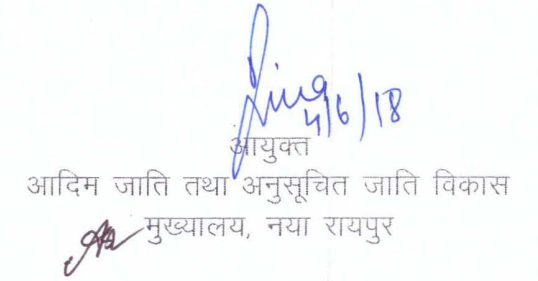 4/6/18
आयुक्त
आदिम जाति तथा अनुसूचित जाति विकास
मुख्यालय, नया रायपुर